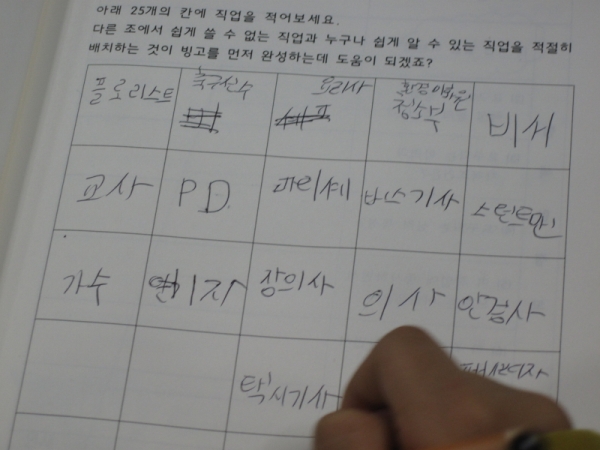 아래 25개의 칸에 직업을 적어보세요.
다른 조에서 쉽게 쓸 수 없는 직업과 누구나 쉽게 알 수 있는 직업을 적절히
배치하는 것이 빙고를 먼저 완성하는데 도움이 되겠죠?
플로리스트 축구선수 요리사 환경미화원 청소부 비서
교사 PD 파티셰 버스기사 스턴트맨
가수 연기자 장의사 의사 안검사
택시기사